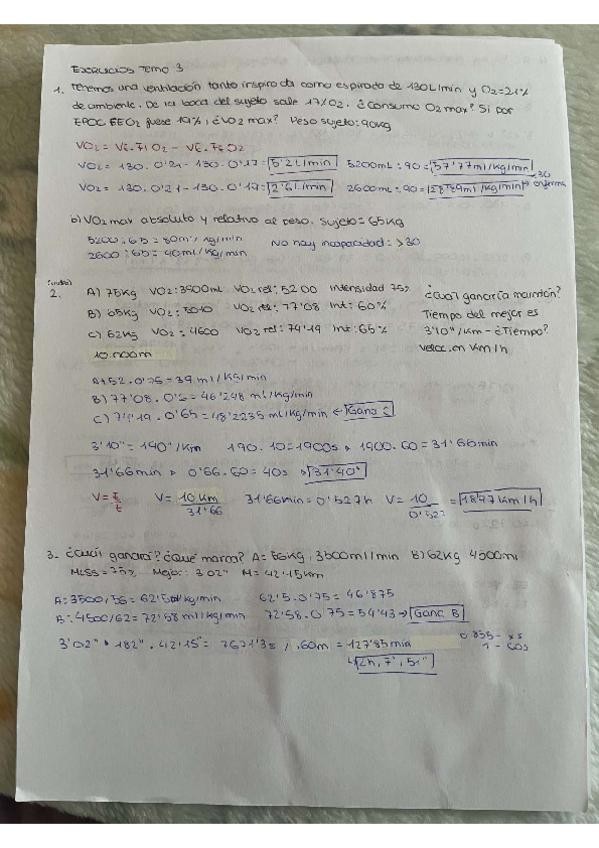 EJERCICIOS TEMA 3
1. Tenemos una ventilación tanto inspirada como espirada de 130L/min y O2=21%
de ambiente. De la boca del sujeto sale 17%O2. ¿Consumo O2max? Si por
EPOC FEO2 fuese 19%, ¿VO2 max? Peso sujeto: 90kg
VO2 = VE.FIO2 - VE.FEO2
VO2 = 130.0'21 - 130.0'17 = 5'2L/min 5200mL:90 = 57'77ml/kg/min
VO2 = 130.0'21 - 130.0'19 = 2'6L/min 2600mL:90 = 28'89ml/kg/min <30 enfermo
b) VO2 max absoluto y relativo al peso. Sujeto = 65kg
5200:65 = 80ml/kg/min No hay incapacidad: >30
2600:65 = 40ml/kg/min
2. A) 75kg VO2: 3900ml VO2 rel: 52'00 Intensidad 75% ¿Cuál ganaría maratón?
B) 65kg VO2: 5010 VO2 rel: 77'08 Int: 60% Tiempo del mejor es
C) 62kg VO2: 4600 VO2 rel: 74'19 Int: 65% 3'10"/km - ¿Tiempo?
10.000m Veloc. en km/h
A) 52.0'75 = 39ml/kg/min
B) 77'08.0'6 = 46'248 ml/kg/min
C) 74'19.0'65 = 48'2235ml/kg/min ← Gana C
3'10" = 190"/km 190.10 = 1900s → 1900:60 = 31'66min
31'66min → 0'66.60 = 40s → 31'40"
V = 10km/31'66 31'66min = 0'527h V = 10/0'527 = 18'97km/h
3. ¿Cuál ganará? ¿Qué marca? A = 56kg, 3500ml/min B) 62kg 4500ml
MLSS = 75% Mejor: 3'02" M = 42'15km
A: 3500/56 = 62'5ml/kg/min 62'5.0'75 = 46'875
B: 4500/62 = 72'58ml/kg/min 72'58.0'75 = 54'43 → Gana B
3'02" → 182".42'15 = 7671'3s /.60m = 127'85min 0'855 - xs
1 - 60s
2h, 7', 51"